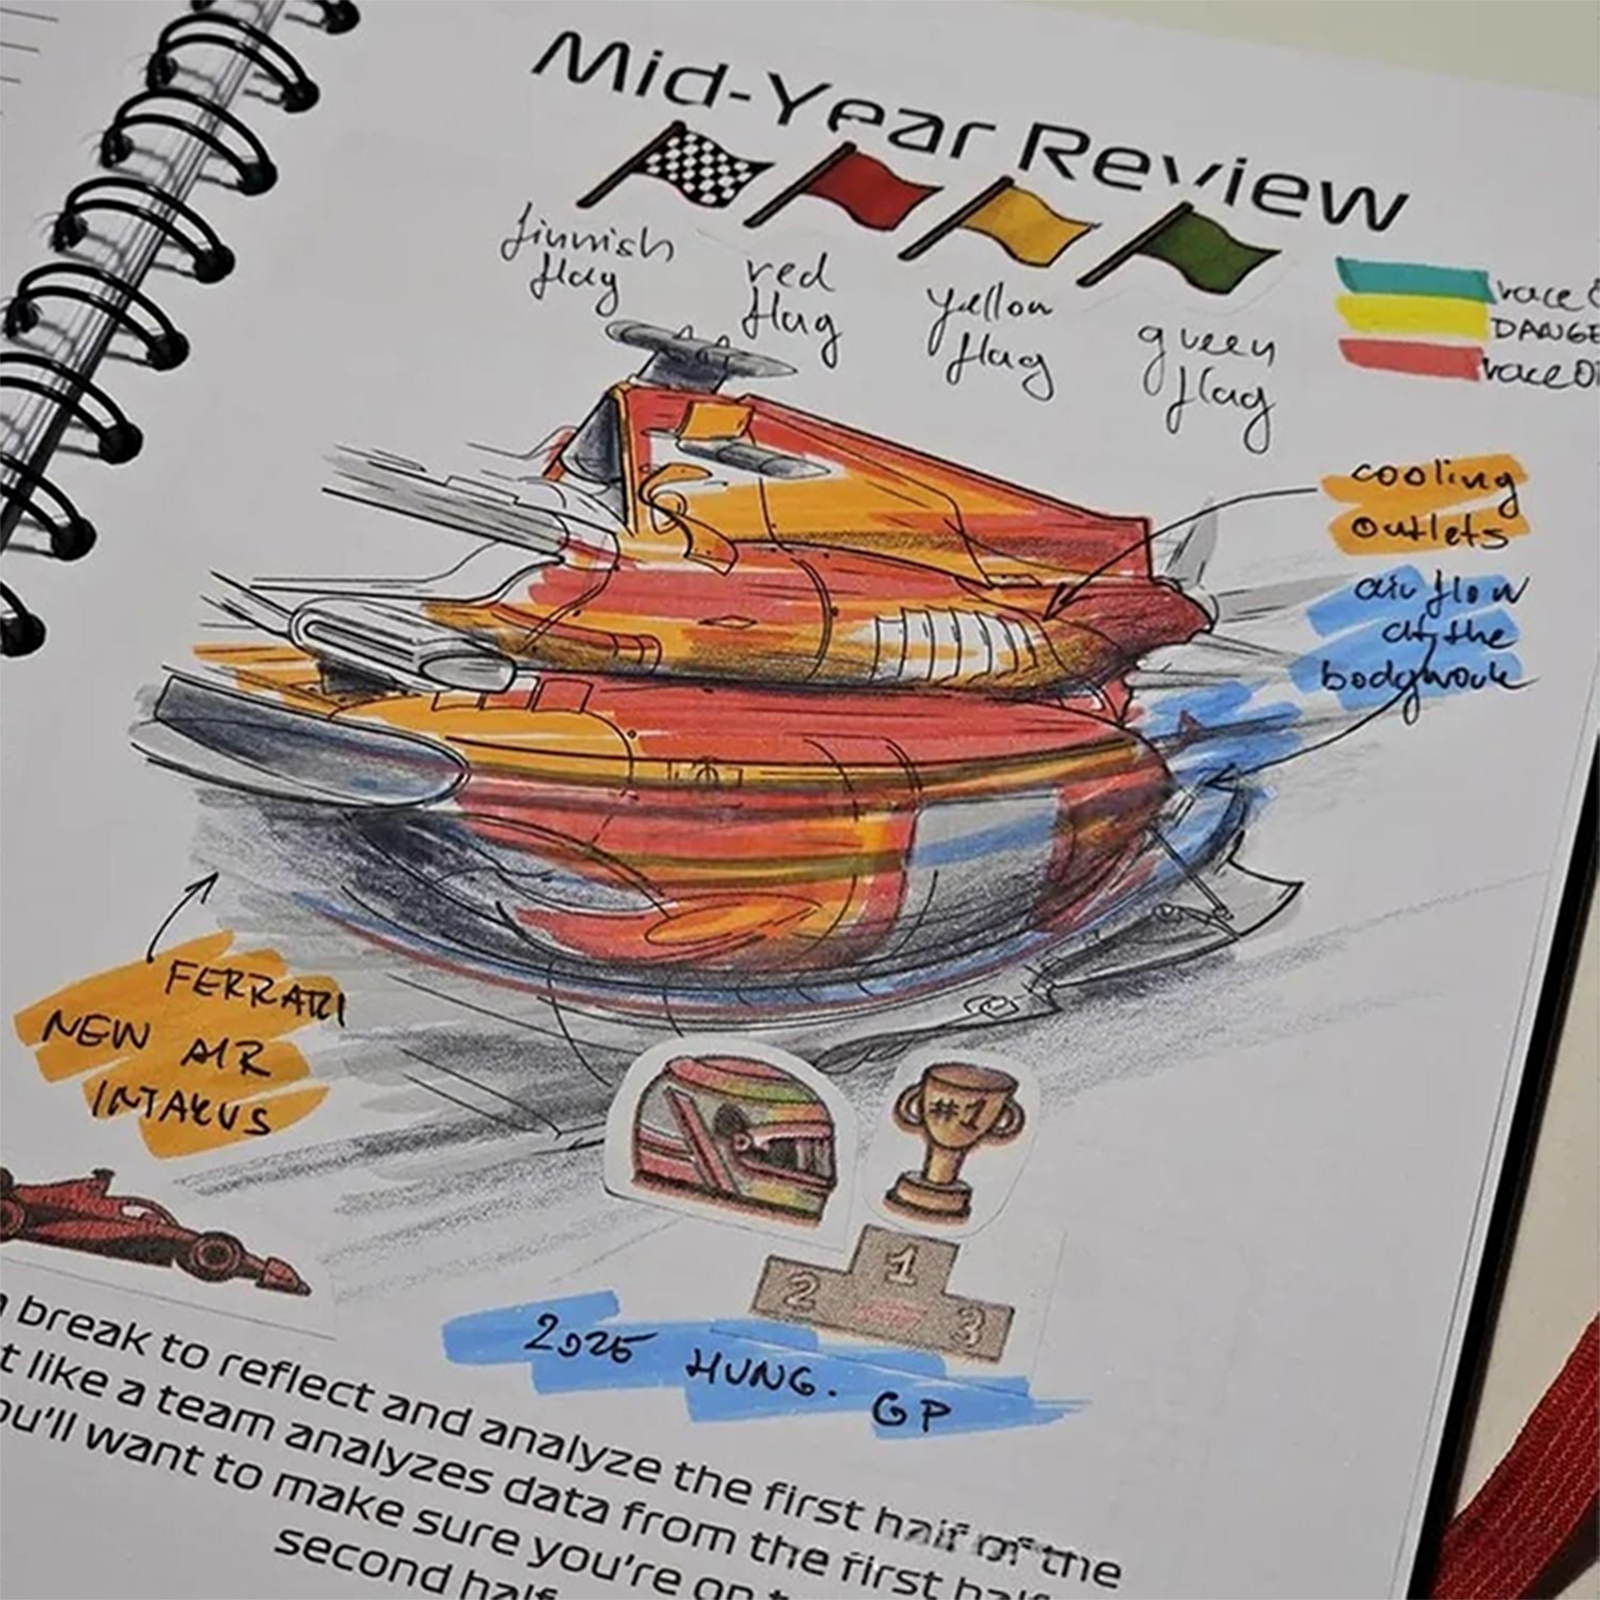 Mid-Year Review
finnish
flag
red
flag
yellow
flag
green
flag
race
DANGE
race
cooling
outlets
air flow
at the
bodywork
FERRARI
NEW AIR
INTAKUS
#1
1
2
3
2025 HUNG. GP
break to reflect and analyze the first half of the
like a team analyzes data from the first half
ou'll want to make sure you're on
second half